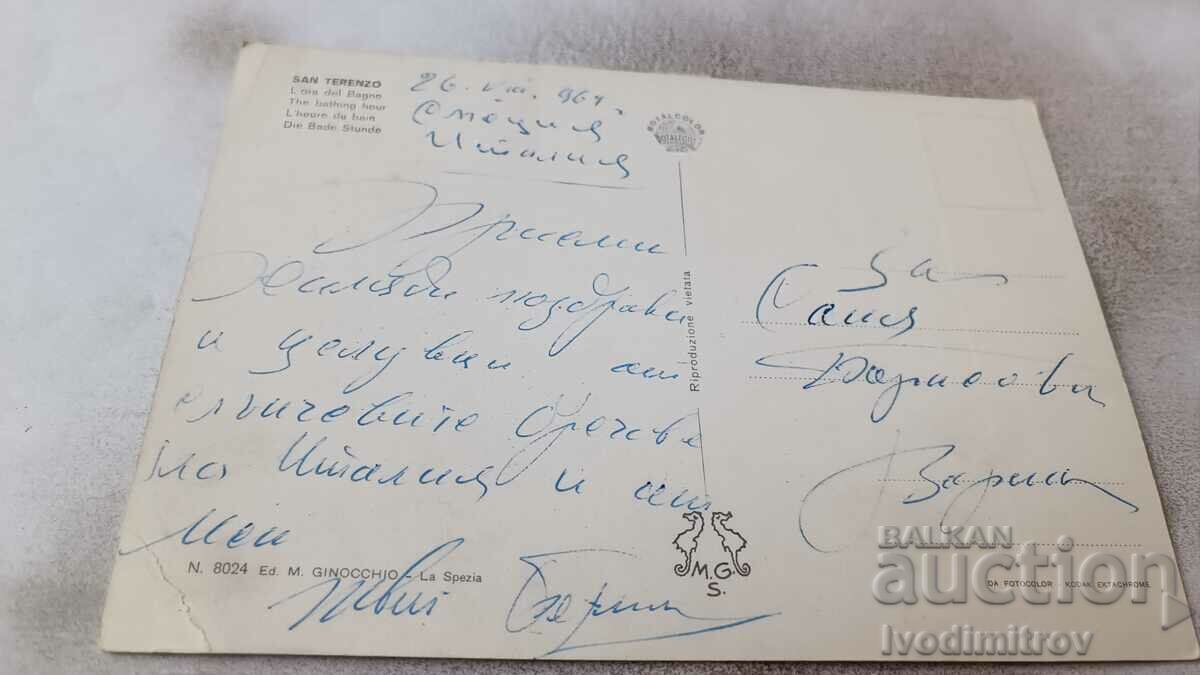 SAN TERENZO
L'ora del Bagno
The bathing hour
L'heure du bain
Die Bade Stunde
26. VIII. 964 г.
Специя
Италия
ROTALCOLOR
Приеми
хиляди поздрави
и целувки от
слънчевите брегове
на Италия и от
мен
твой
Riproduzione vietata
За
Сашя
Борисова
Варна
N. 8024 Ed. M. GINOCCHIO - La Spezia
M.G.
S.
DA FOTOCOLOR - KODAK EKTACHROME
BALKAN
auction
Ivodimitrov